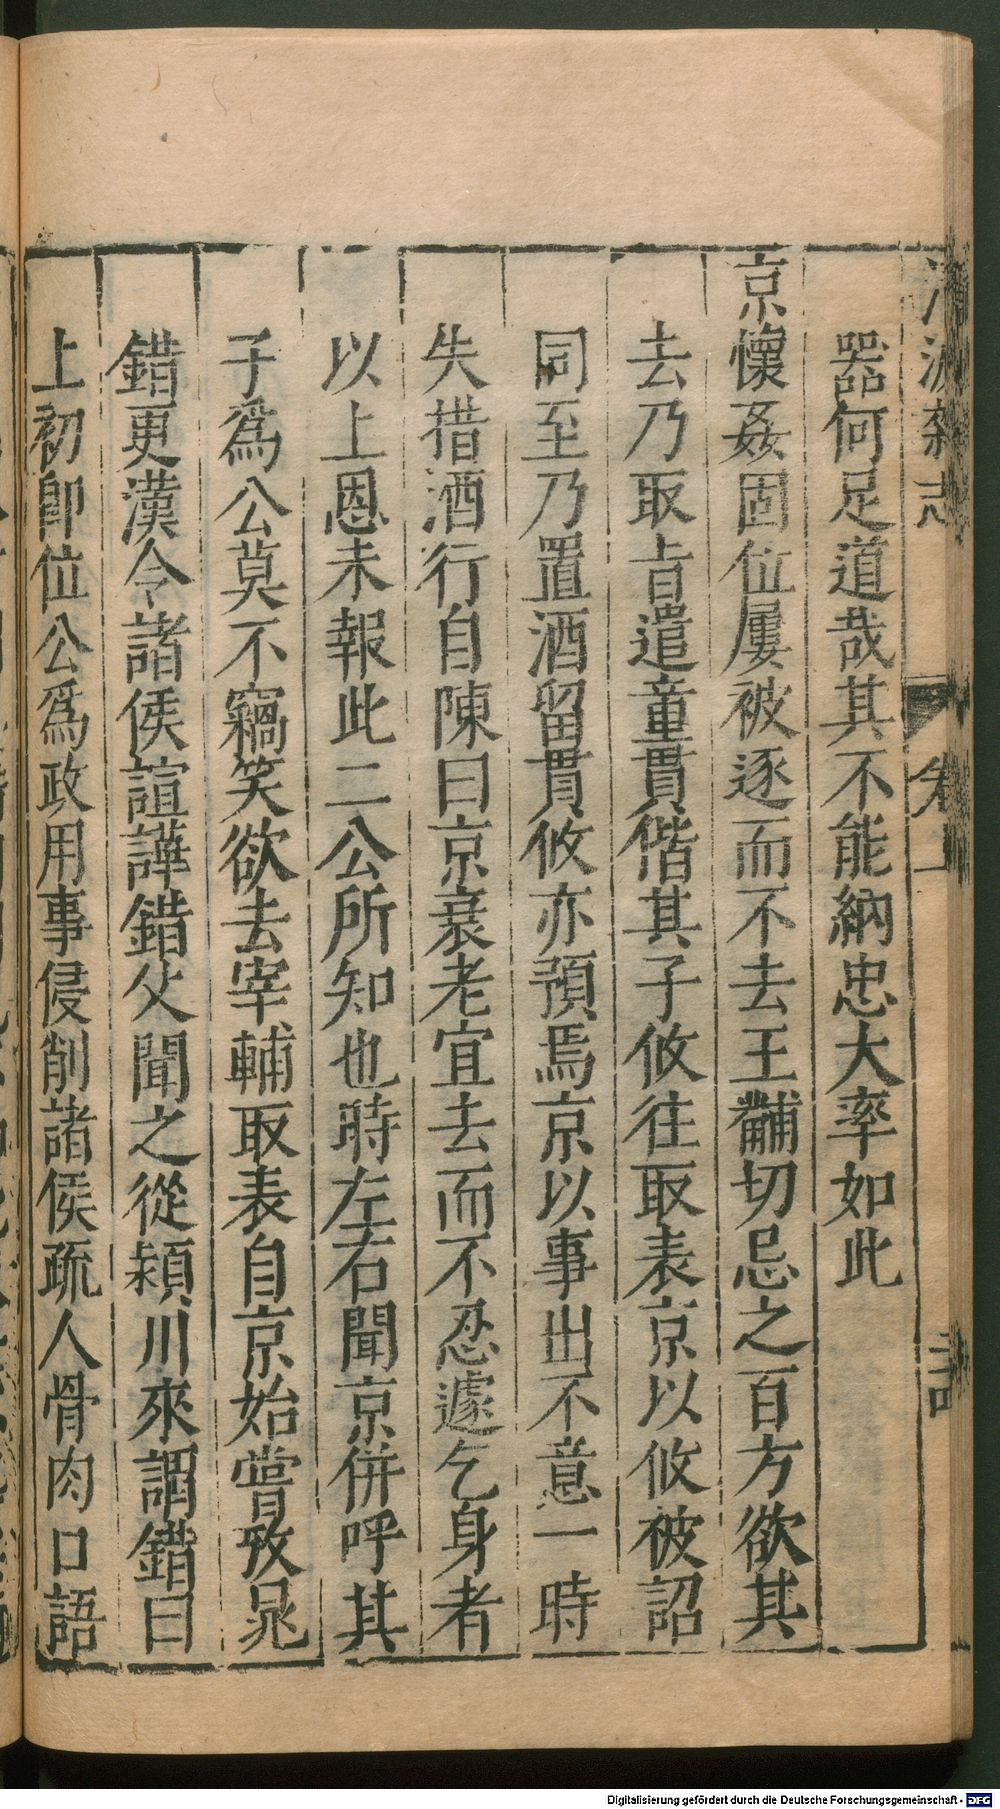 器何足道哉其不能納忠大率如此
京懷姦固位屢被逐而不去王黼切忌之百方欲其
去乃取旨遣童貫偕其子攸往取表京以攸被詔
同至乃置酒留貫攸亦預焉京以事出不意一時
失措酒行自陳曰京衰老宜去而不忍遽乞身者
以上恩未報此二公所知也時左右聞京併呼其
子爲公莫不竊笑欲去宰輔取表自京始嘗攷晁
錯更漢令諸侯諠譁錯父聞之從潁川來謂錯曰
上初卽位公爲政用事侵削諸侯疏人骨肉口語
Digitalisierung gefördert durch die Deutsche Forschungsgemeinschaft - DFG